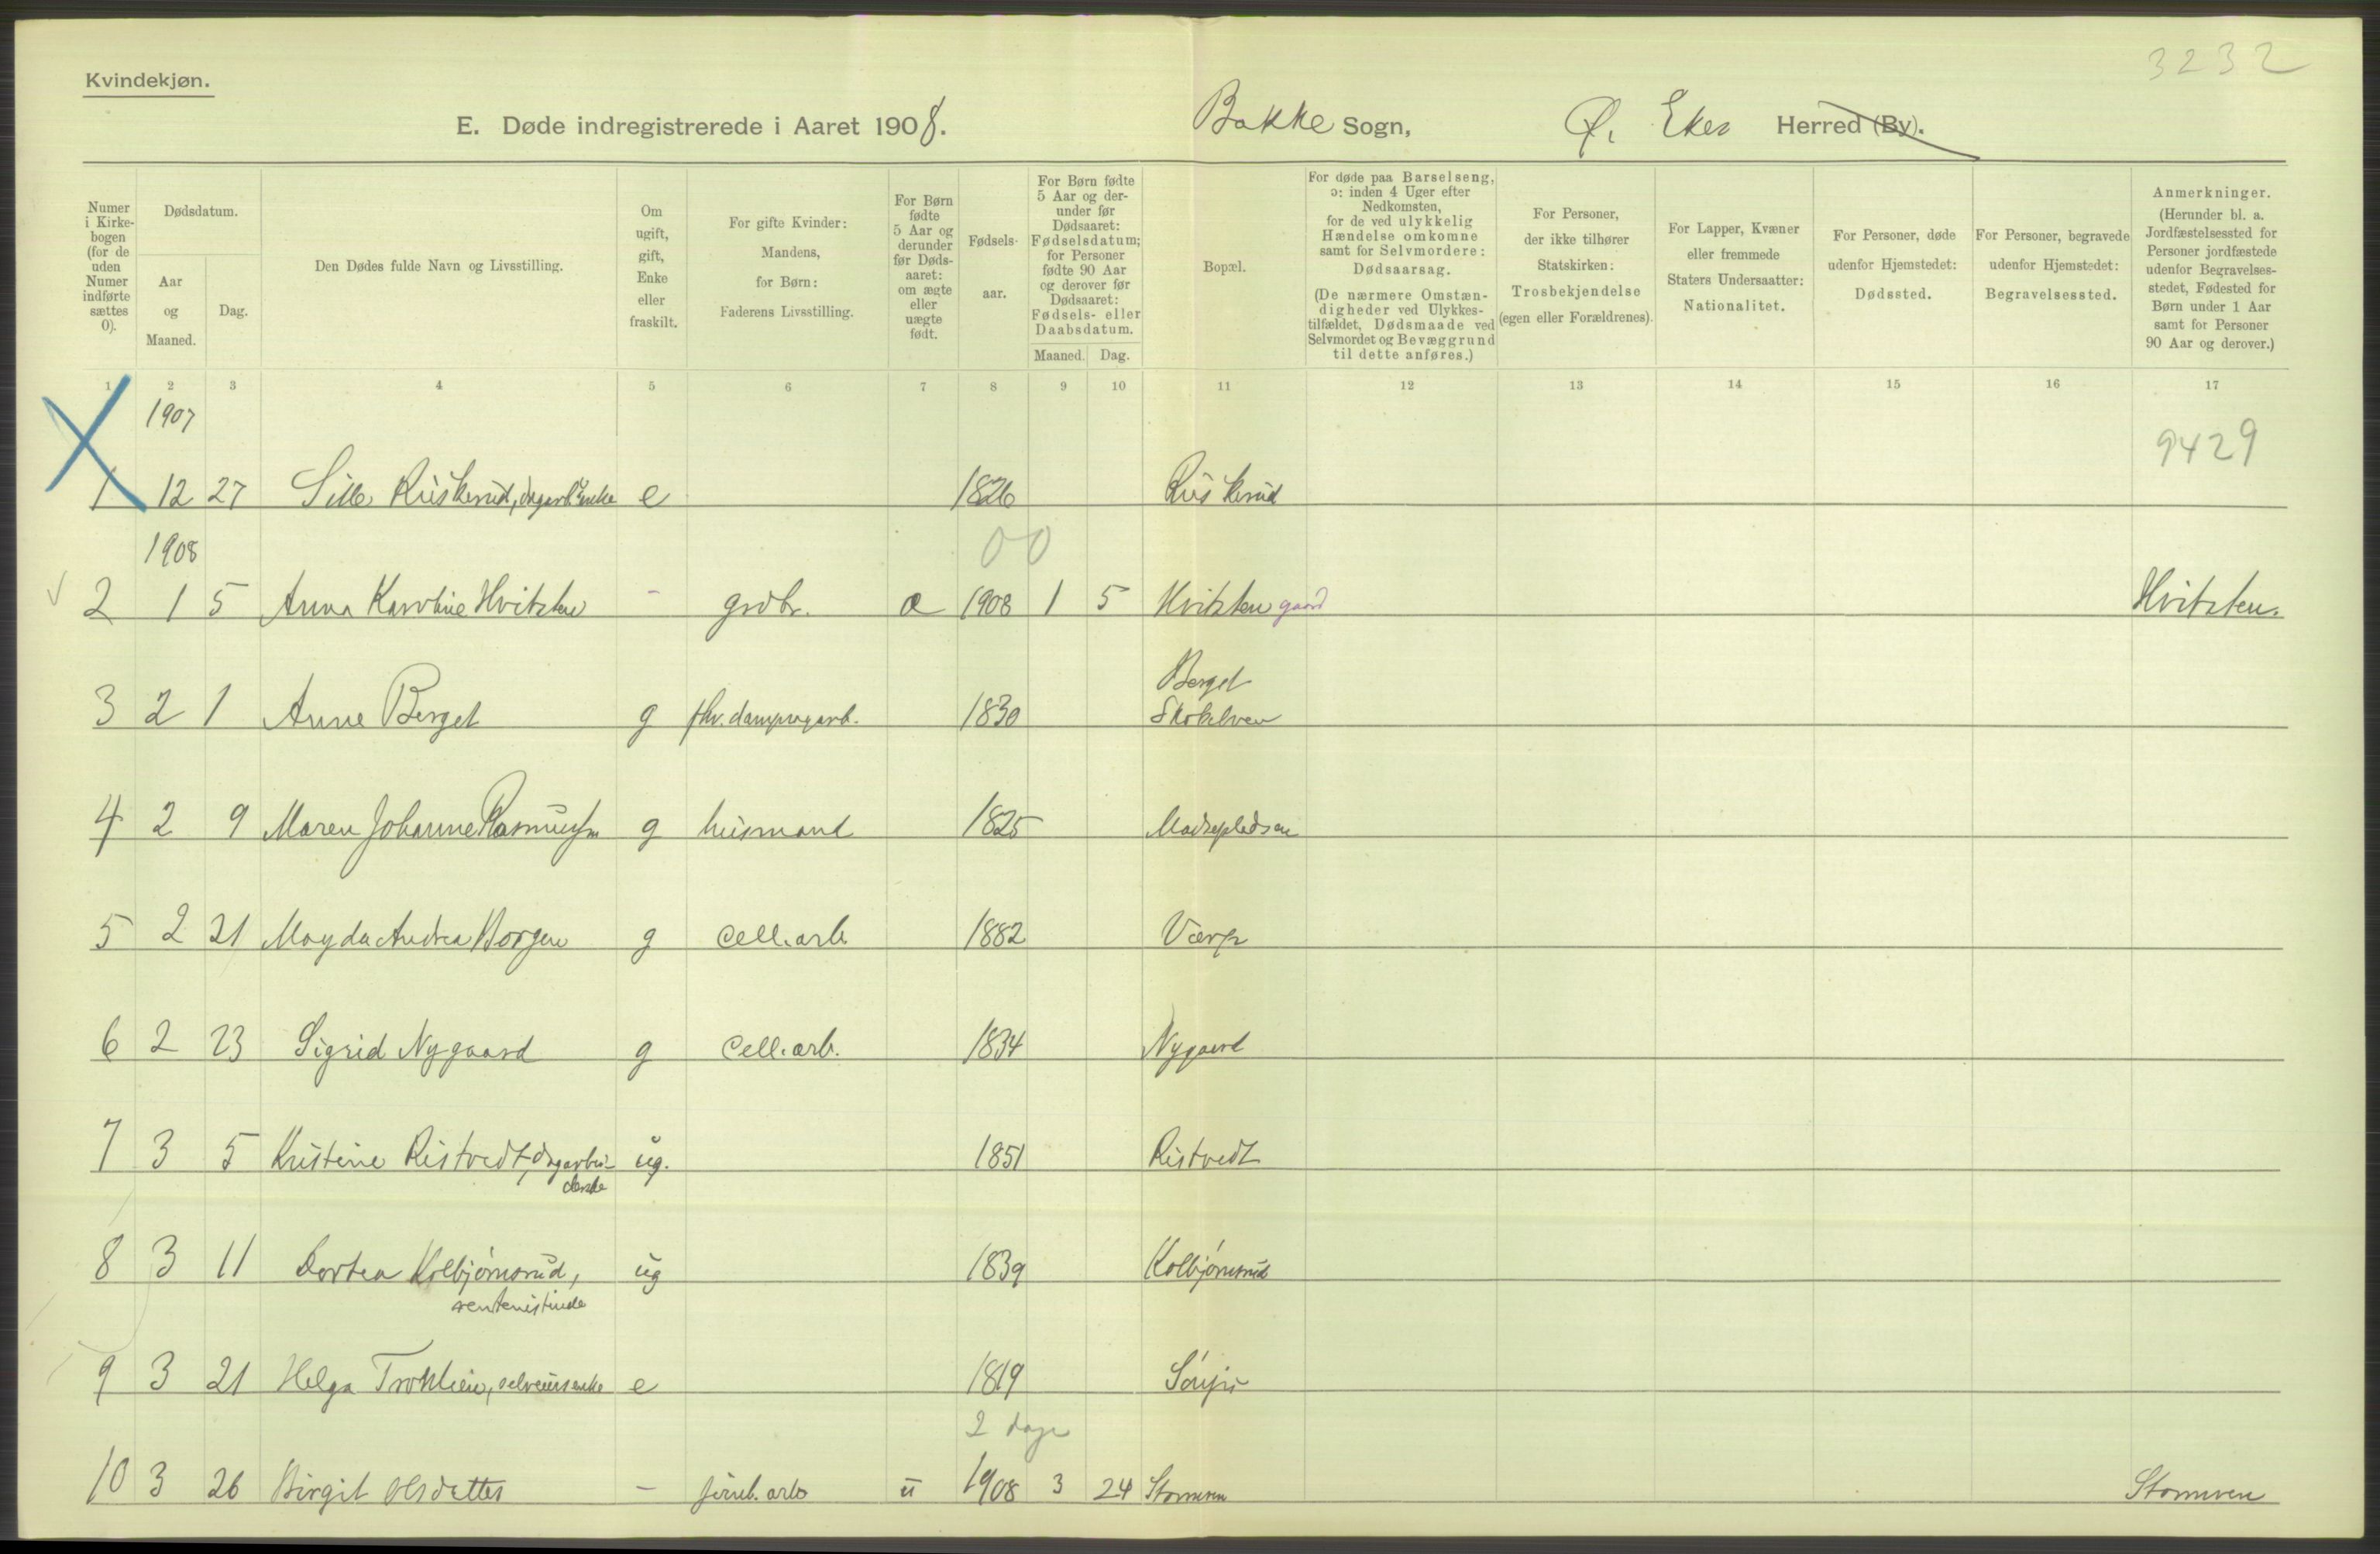 3232
Kvindekjøn.
E. Døde indregistrerede i Aaret 1908. Bakke Sogn, Ø. Eker Herred (By).
Numer i Kirkebogen (for de uden Numer indførte sættes 0).
Dødsdatum.
Aar og Maaned.
Dag.
Den Dødes fulde Navn og Livsstilling.
Om ugift, gift, Enke eller fraskilt.
For gifte Kvinder: Mandens, for Børn: Faderens Livsstilling.
For Børn fødte 5 Aar og derunder før Dødsaaret: om ægte eller uægte født.
Fødselsaar.
For Børn fødte 5 Aar og derunder før Dødsaaret: Fødselsdatum; for Personer fødte 90 Aar og derover før Dødsaaret: Fødsels- eller Daabsdatum.
Maaned. Dag.
Bopæl.
For døde paa Barselseng, ɔ: inden 4 Uger efter Nedkomsten, for de ved ulykkelig Hændelse omkomne samt for Selvmordere: Dødsaarsag. (De nærmere Omstændigheder ved Ulykkestilfældet, Dødsmaade ved Selvmordet og Bevæggrund til dette anføres.)
For Personer, der ikke tilhører Statskirken: Trosbekjendelse (egen eller Forældrenes).
For Lapper, Kvæner eller fremmede Staters Undersaatter: Nationalitet.
For Personer, døde udenfor Hjemstedet: Dødssted.
For Personer, begravede udenfor Hjemstedet: Begravelsessted.
Anmerkninger. (Herunder bl. a. Jordfæstelsessted for Personer jordfæstede udenfor Begravelsesstedet, Fødested for Børn under 1 Aar samt for Personer 90 Aar og derover.)
1 2 3 4 5 6 7 8 9 10 11 12 13 14 15 16 17
1907
9429
1 12 27 Sille Kuskerud, dagarb. enke e 1826 Kuskerud
1908
00
2 1 5 Anna Karoline Hvitsten - grdbr. æ 1908 1 5 Hvitsten gaard Hvitsten.
Berget
3 2 1 Anne Berget g fhv. dampsagarb. 1830 Skotselven
4 2 9 Maren Johanne Rasmussen g husmand 1825
5 2 21 Magda Andrea Horgen g cell. arb. 1882 Værp
6 2 23 Sigrid Nygaard g cell. arb. 1834 Nygaard
7 3 5 Kristine Ristvedt, dagarbei- ug. 1851 Ristvedt
derske
8 3 11 Dortea Kolbjørnsrud, ug 1839 Kolbjørnsrud
rentenistinde
9 3 21 Helga Trohleie, selveiersenke e 1819
2 dage
10 3 26 Birgit Olsdatter - jernb. arb. u 1908 3 24 Stomven Stomven